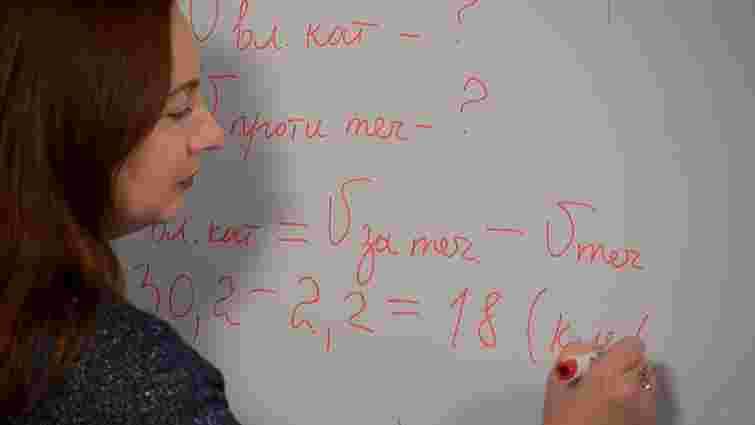 V вл. кат - ?
V проти теч - ?
вл. кат = V за теч - V теч
30,2 - 2,2 = 18 (км/